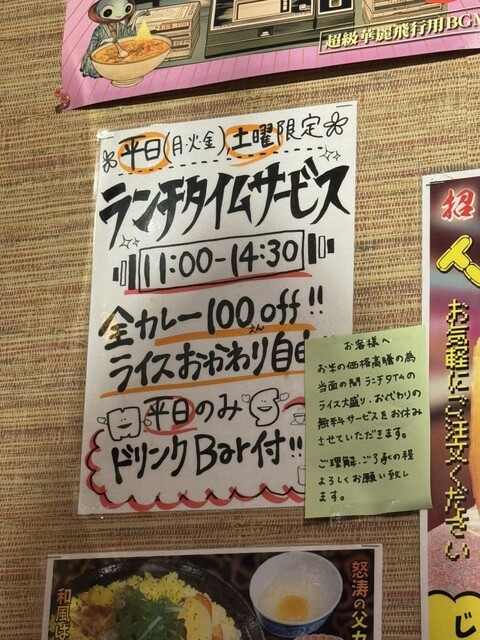 超級華麗飛行用BGM
平日(月・火・金)、土曜限定
ランチタイムサービス
11:00-14:30
全カレー100off!!
えん
ライスおかわり自由
平日のみ
ドリンクBar付!!
お客様へ
お米の価格高騰の為
当面の間ランチタイムの
ライス大盛り、お代わりの
無料サービスをお休み
させていただきます。
ご理解・ご了承の程
よろしくお願い致し
ます。
招
お気軽にご注文ください
じ
怒涛の父カ
和風は